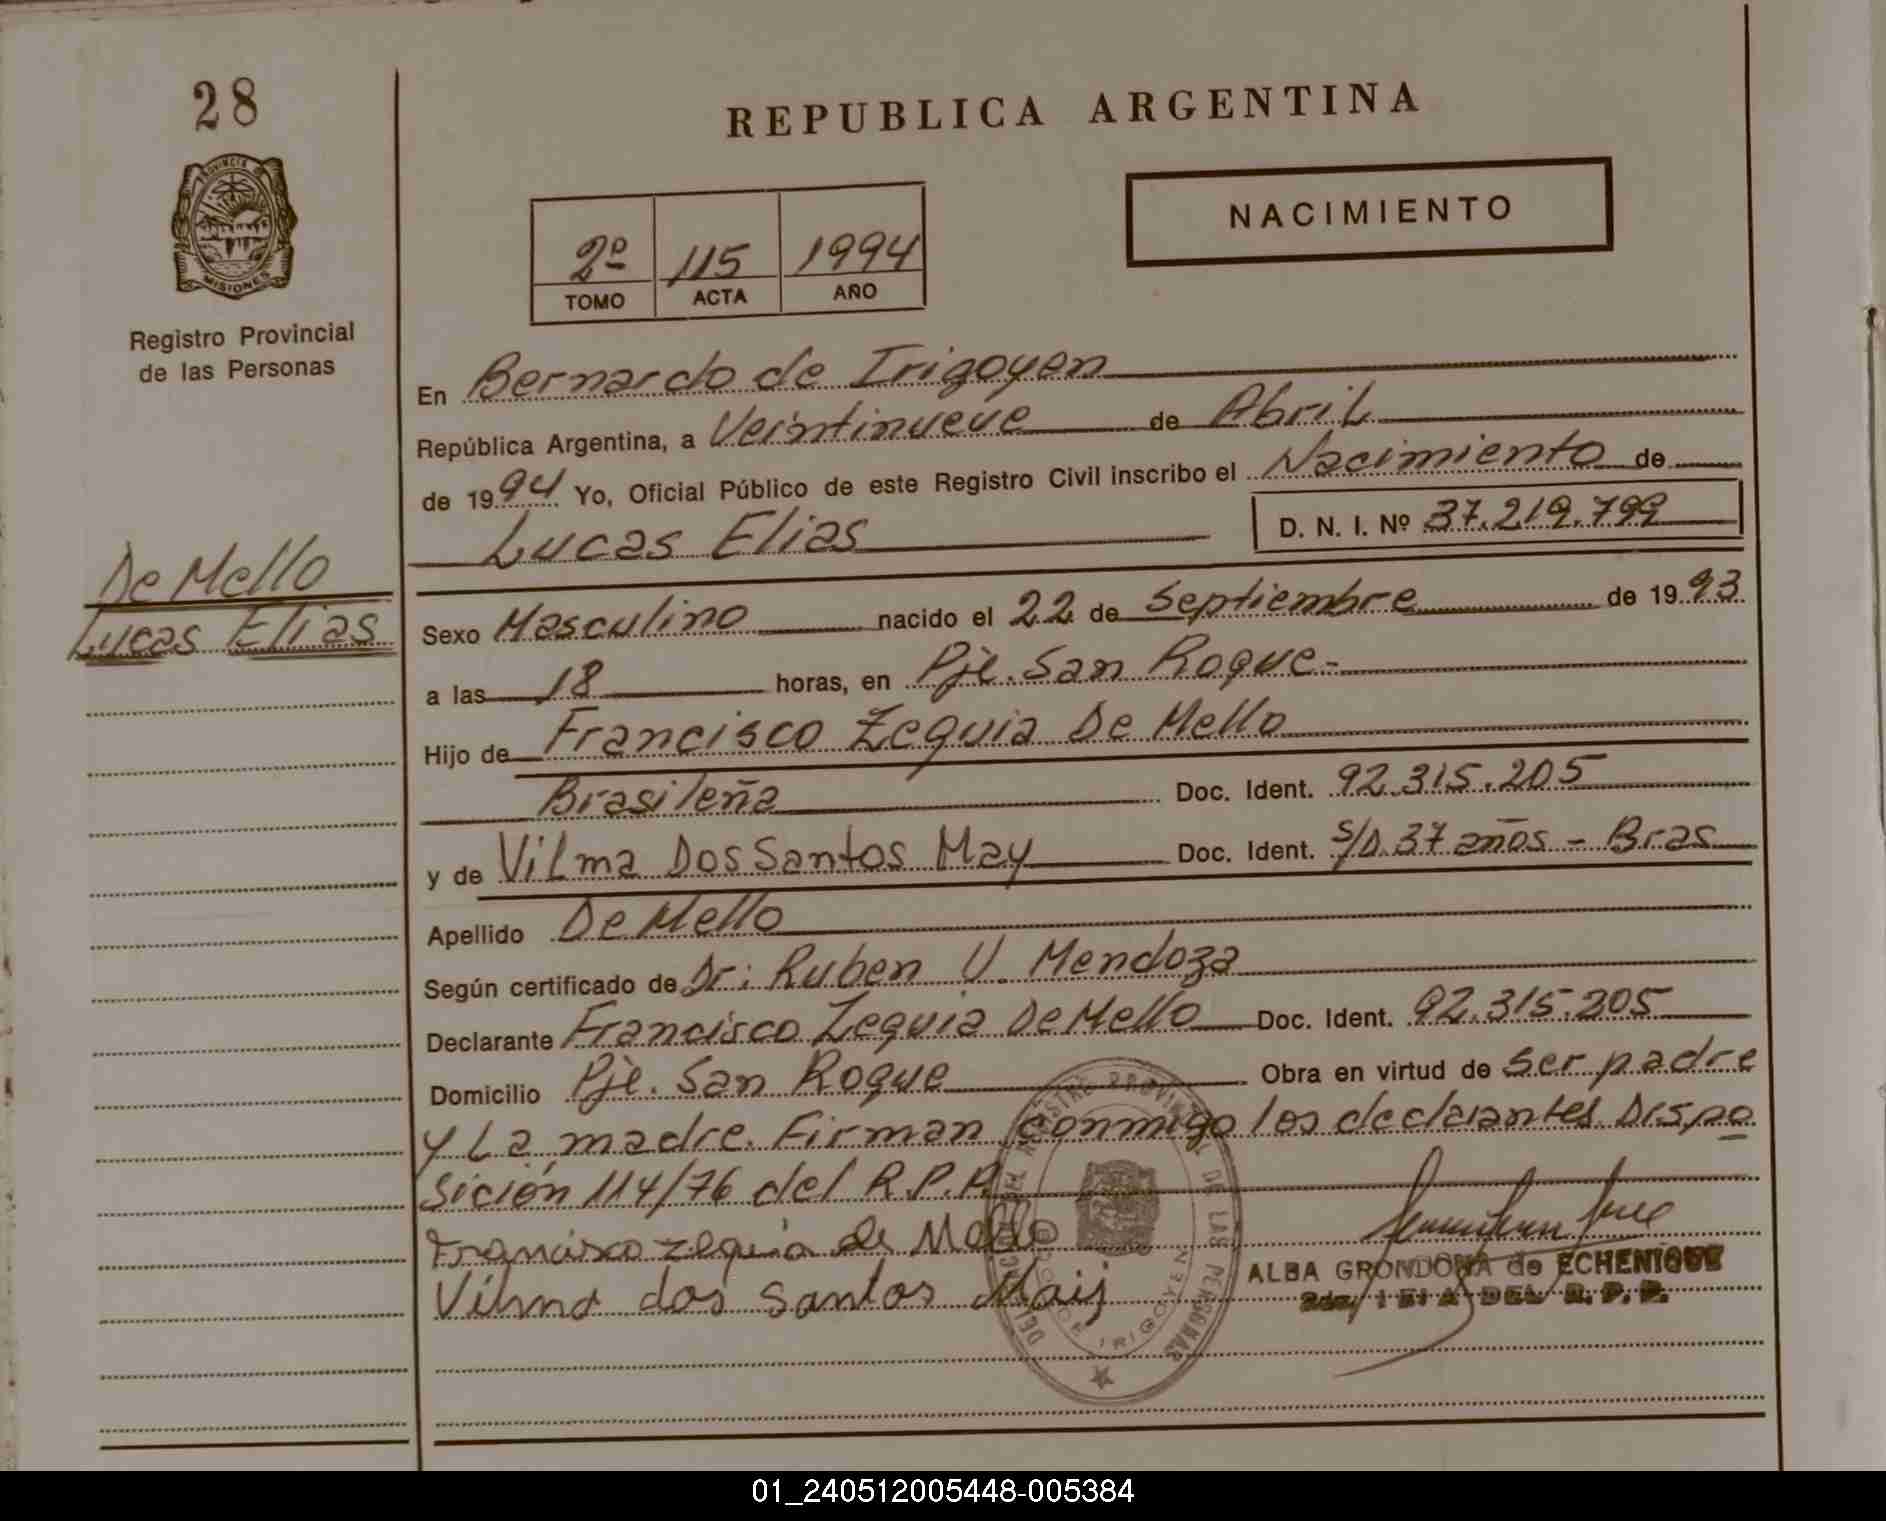 28
REPUBLICA ARGENTINA
PROVINCIA
MISIONES
Registro Provincial
de las Personas
2º 115 1994
TOMO ACTA AÑO
NACIMIENTO
En Bernardo de Irigoyen
República Argentina, a Veintinueve de Abril
de 1994 Yo, Oficial Público de este Registro Civil inscribo el Nacimiento de
Lucas Elias D. N. I. Nº 37.219.799
De Mello
Lucas Elias
Sexo Masculino nacido el 22 de Septiembre de 1993
a las 18 horas, en Pje. San Roque.-
Hijo de Francisco Zequia De Mello
Brasileña Doc. Ident. 92.315.205
y de Vilma Dos Santos May Doc. Ident. S/D. 37 años - Bras
Apellido De Mello
Según certificado de Dr: Ruben U. Mendoza
Declarante Francisco Zequia De Mello Doc. Ident. 92.315.205
Domicilio Pje. San Roque Obra en virtud de Ser padre
y La madre. Firman conmigo los declarantes Dispo
sición 114/76 del R.P.P.
Francisco zequia de Mello
Vilma dos Santos Maij
ALBA GRONDONA de ECHENIQUE
DEL R. P. P.
DEL REGISTRO PROVINCIAL DE LAS PERSONAS
DE IRIGOYEN
01_240512005448-005384